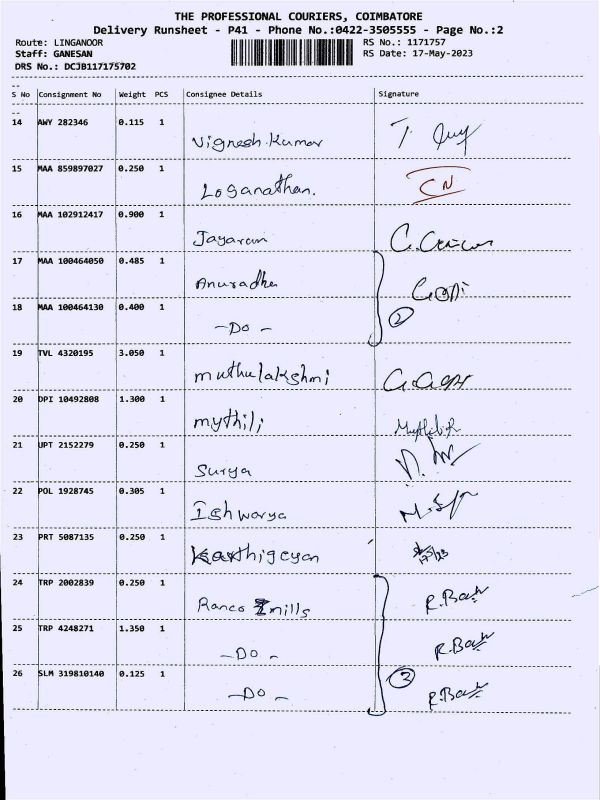 THE PROFESSIONAL COURIERS, COIMBATORE
Delivery Runsheet - P41 - Phone No.:0422-3505555 - Page No.:2
Route: LINGANOOR RS No.: 1171757
Staff: GANESAN RS Date: 17-May-2023
DRS No.: DCJB117175702
--
S No Consignment No Weight PCS Consignee Details Signature
--
14 AWY 282346 0.115 1 Vignesh.Kumar
15 MAA 859897027 0.250 1 Loganathan. CN
16 MAA 102912417 0.900 1 Jayaram
17 MAA 100464050 0.485 1 Anuradha
18 MAA 100464130 0.400 1 -Do- 2
19 TVL 4320195 3.050 1 muthulakshmi
20 DPI 10492808 1.300 1 mythili
21 UPT 2152279 0.250 1 Surya
22 POL 1928745 0.305 1 Ishwarya
23 PRT 5087135 0.250 1 Karthigeyan
24 TRP 2002839 0.250 1 Ranco mills
25 TRP 4248271 1.350 1 -Do-
26 SLM 319810140 0.125 1 -Do- 3